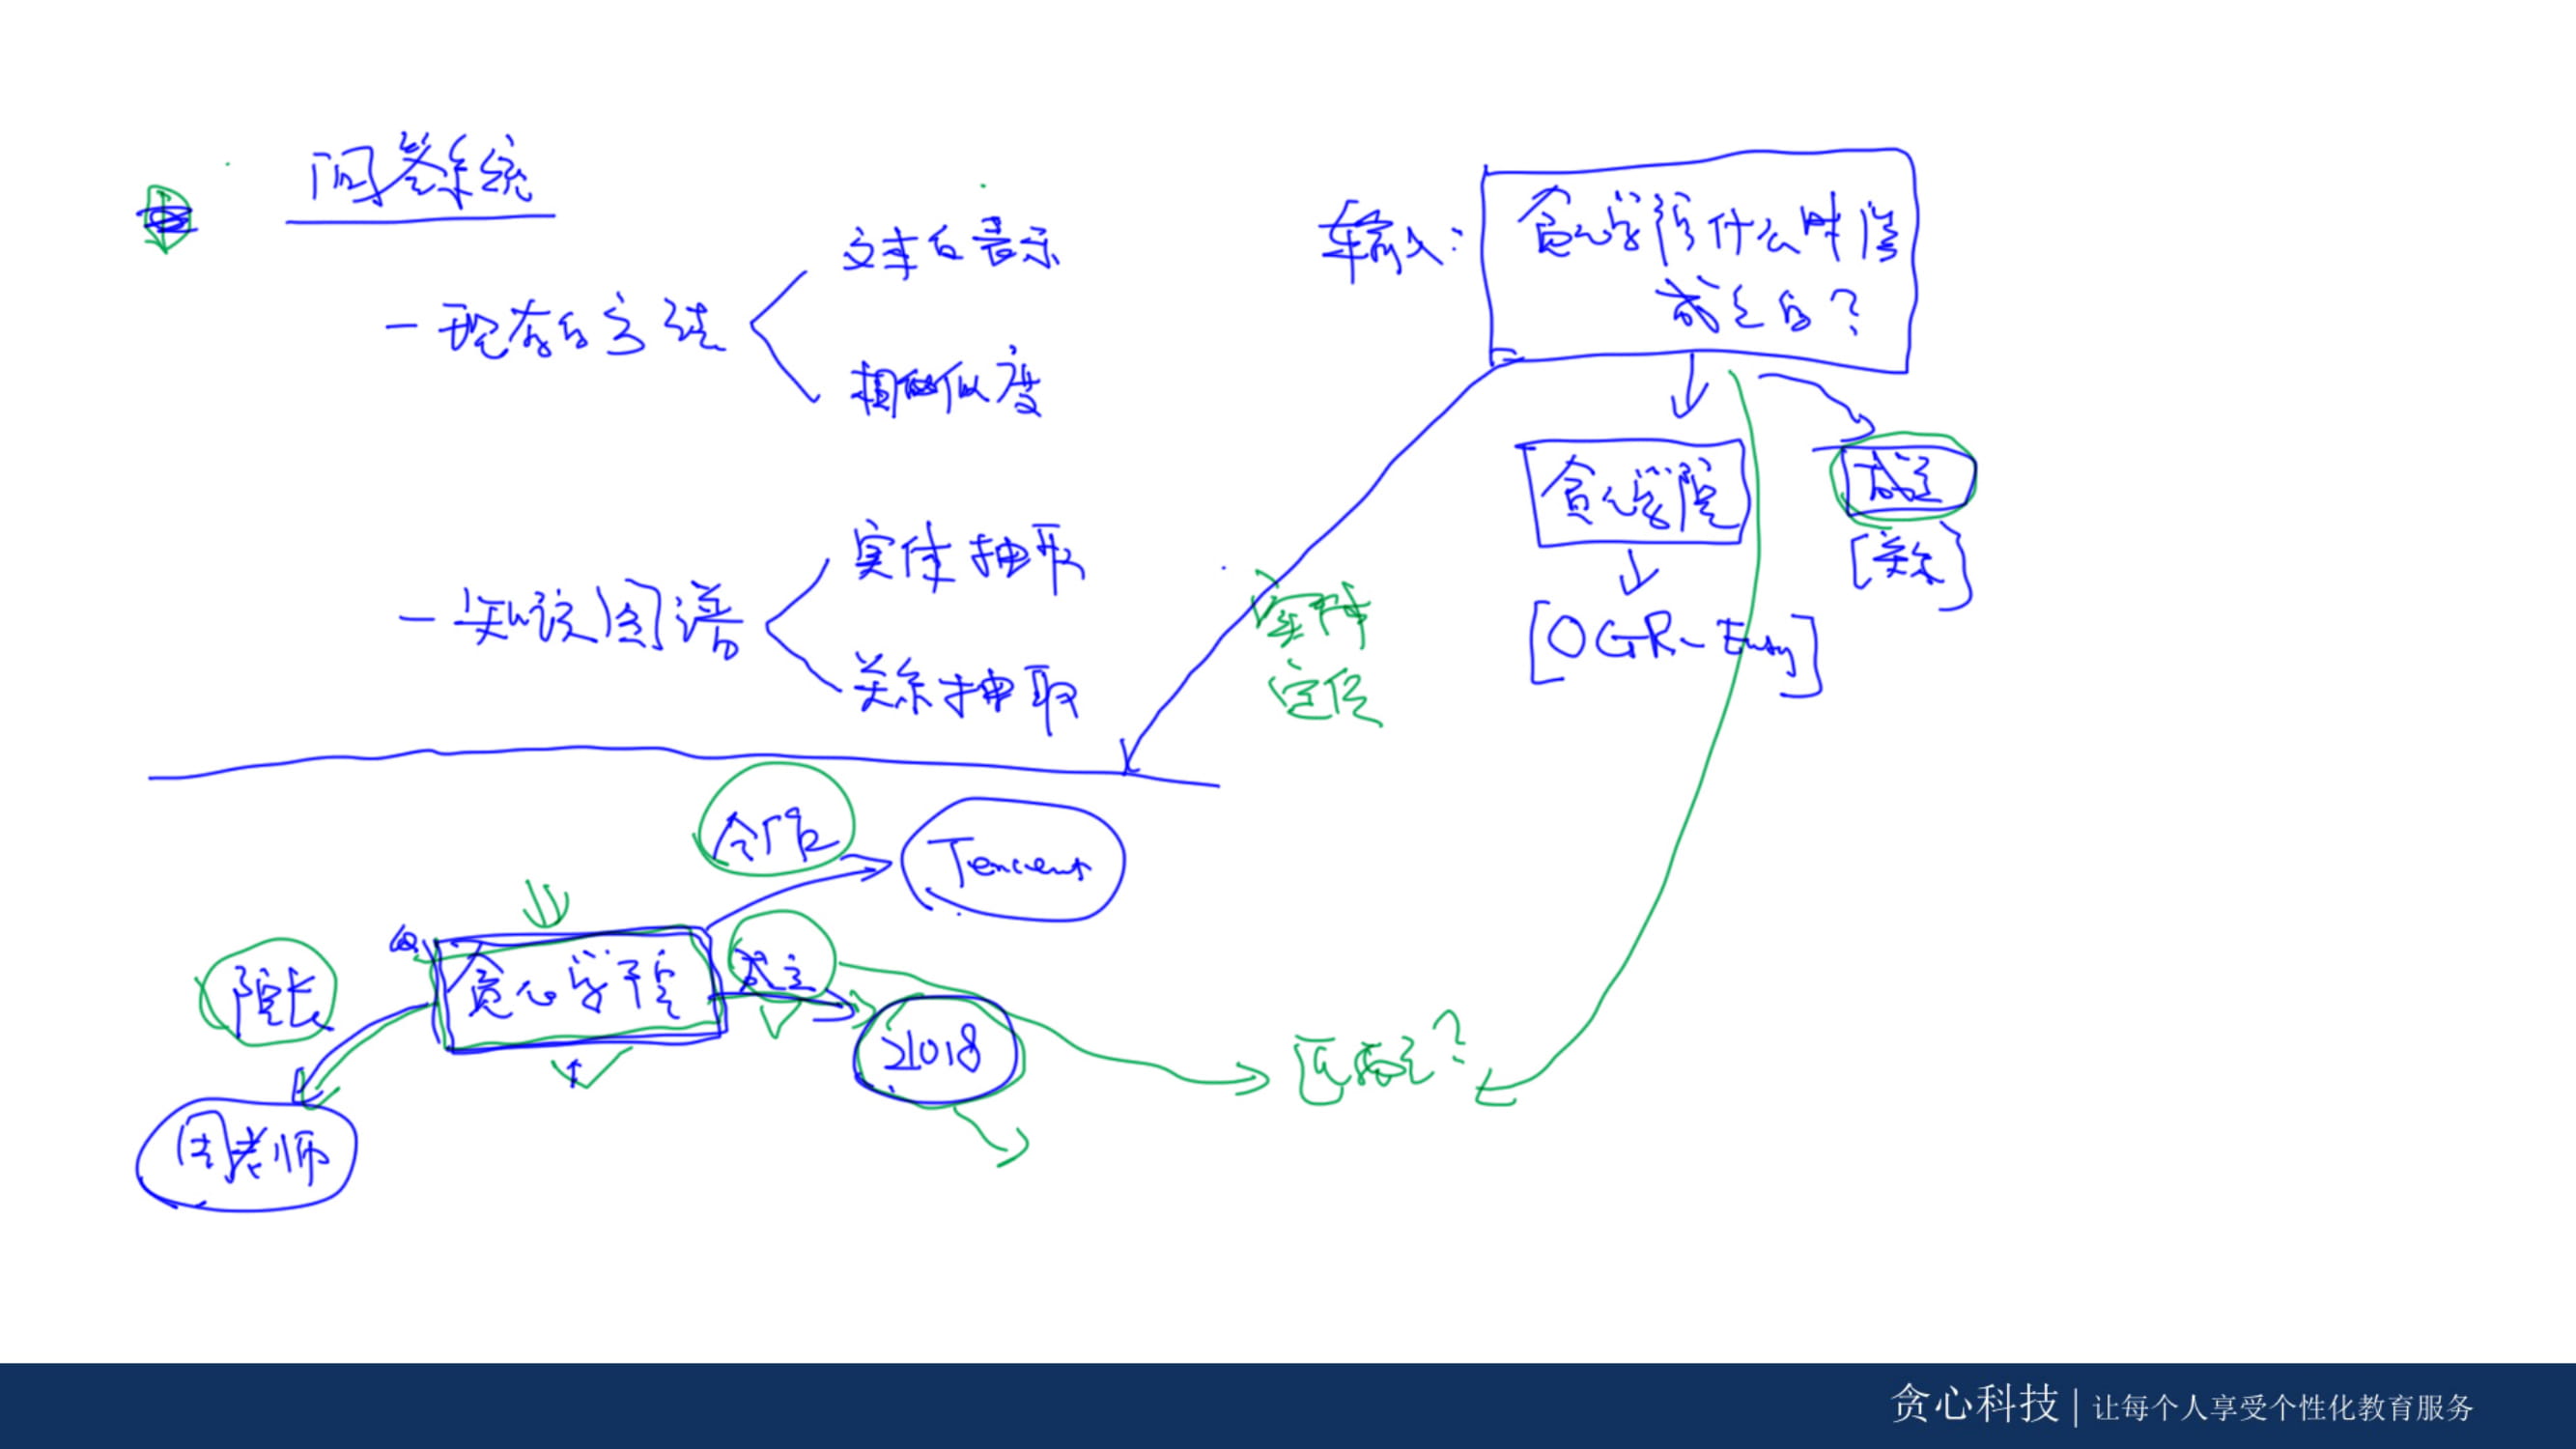 问答系统
- 现有的方法
文本的表示
相似度
- 知识图谱
实体抽取
关系抽取
输入:
贪心学院什么时候
成立的?
贪心学院
[OGR-Entity]
成立
[关系]
定位
合作
Tencent
院长
贪心学院
成立
2018
周老师
贪心科技 | 让每个人享受个性化教育服务